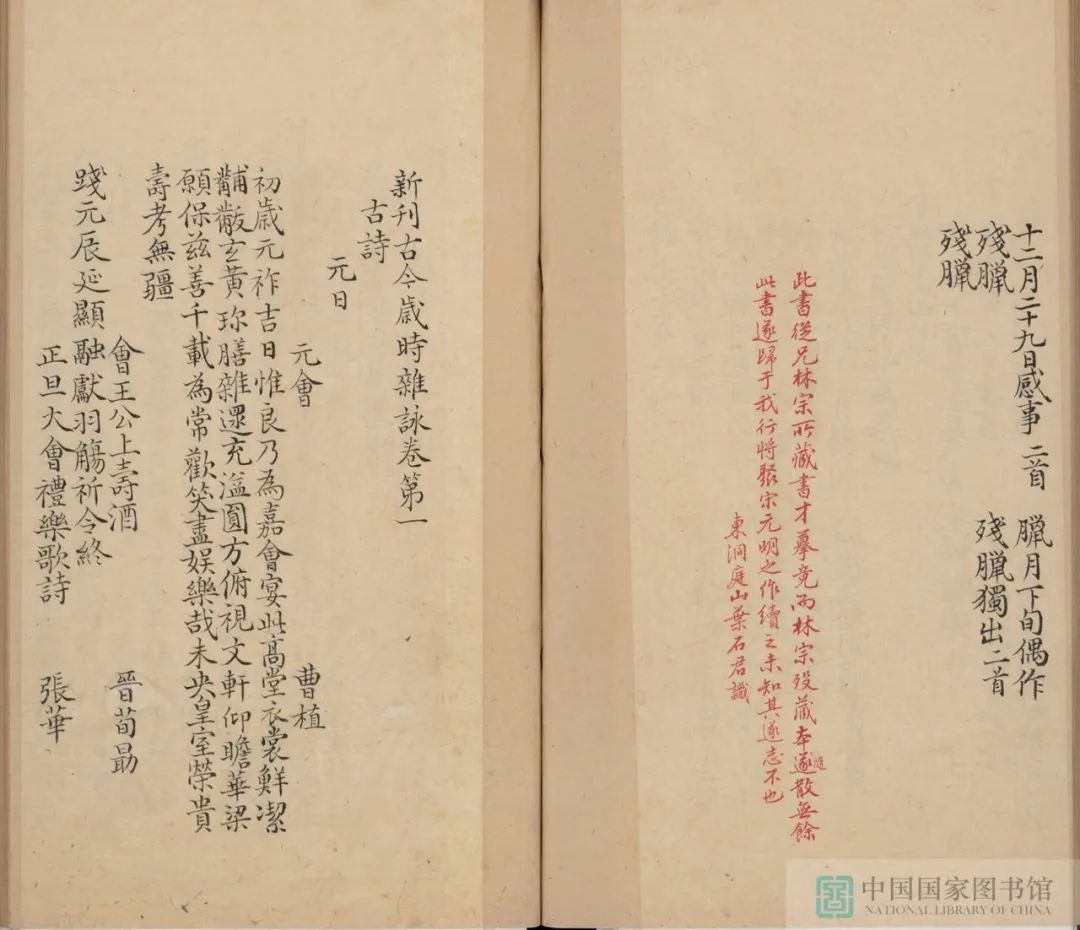 十二月二十九日感事 二首 臘月下旬偶作
殘臘 殘臘獨出二首
殘臘
此書從兄林宗所藏書才摹竟而林宗歿藏本遂散無餘
隨
此書遂歸于我行將聚宋元明之作續之未知其遂志不也
東洞庭山葉石君識
新刊古今歲時雜詠卷第一
古詩
元日
元會 曹植
初歲元祚吉日惟良乃為嘉會宴此高堂衣裳鮮潔
黼黻玄黃珍膳雜遝充溢圓方俯視文軒仰瞻華梁
願保茲善千載為常歡笑盡娛樂哉未央皇室榮貴
壽考無疆
會王公上壽酒 晉荀勗
踐元辰延顯融獻羽觴祈令終
正旦大會禮樂歌詩 張華
中国国家图书馆
NATIONAL LIBRARY OF CHINA